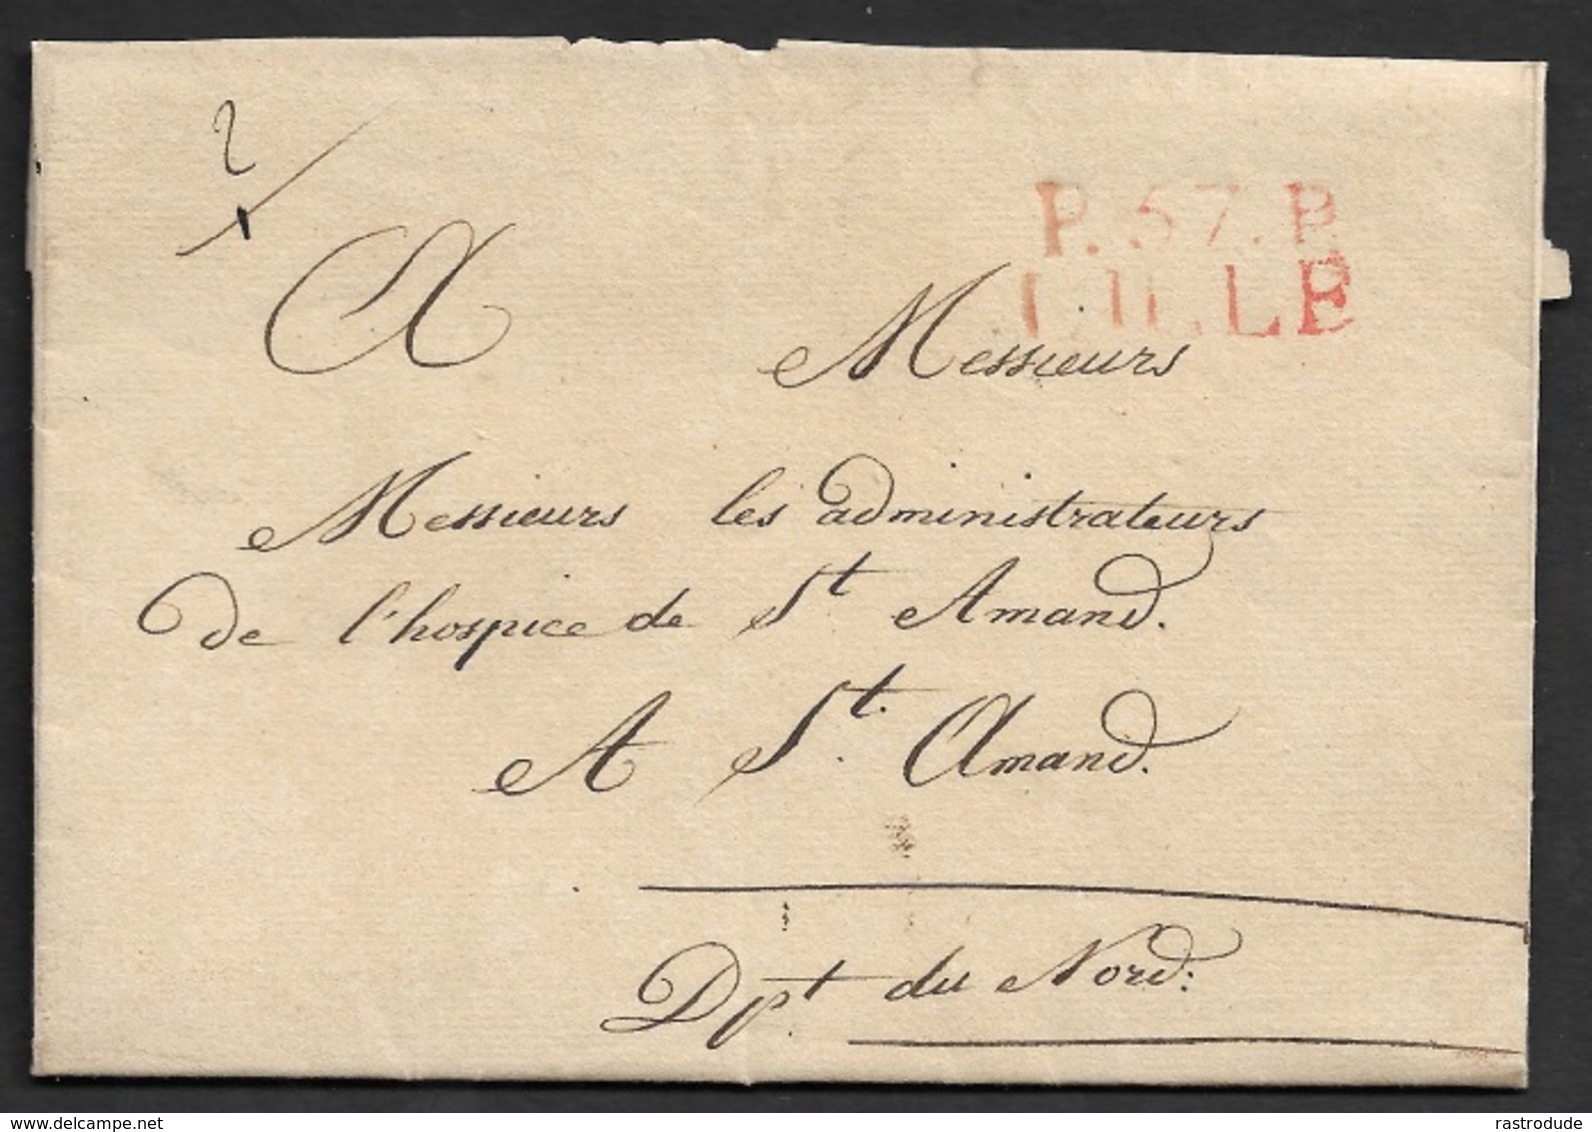 2
P.57.P.
LILLE
A Messieurs
Messieurs les administrateurs
de l'hospice de St Amand.
A St. Amand.
Dpt. du Nord:
delcampe.net
rastrodude